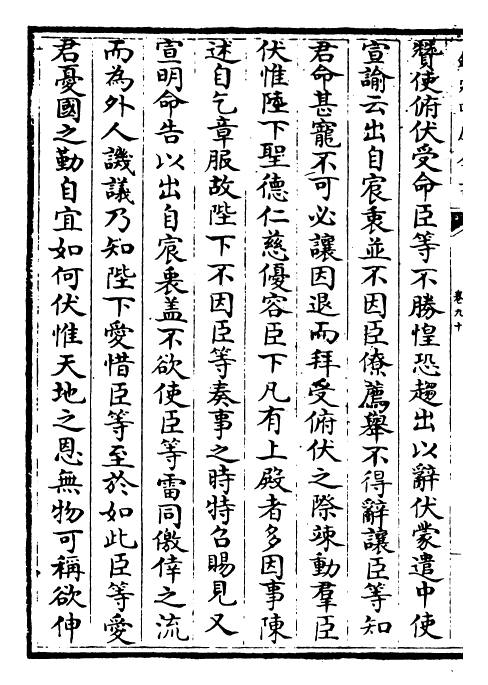 卷九十
贊使俯伏受命臣等不勝惶恐趨出以辭伏蒙遣中使
宣諭云出自宸衷並不因臣僚薦舉不得辭讓臣等知
君命甚寵不可必讓因退而拜受俯伏之際竦動羣臣
伏惟陛下聖德仁慈優容臣下凡有上殿者多因事陳
述自乞章服故陛下不因臣等奏事之時特召賜見又
宣明命告以出自宸衷盖不欲使臣等雷同儌倖之流
而為外人譏議乃知陛下愛惜臣等至於如此臣等愛
君憂國之勤自宜如何伏惟天地之恩無物可稱欲伸